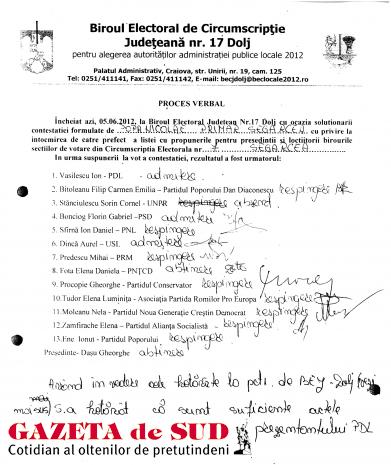 Biroul Electoral de Circumscripţie
Judeţeană nr. 17 Dolj
pentru alegerea autorităţilor administraţiei publice locale 2012
Palatul Administrativ, Craiova, str. Unirii, nr. 19, cam. 125
Tel: 0251/411141, Fax: 0251/411142, E-mail: becjdolj@beclocale2012.ro
PROCES VERBAL
Încheiat azi, 05.06.2012, la Biroul Electoral Judeţean Nr.17 Dolj cu ocazia solutionarii
contestatiei formulate de POPA NICOLAE PRIMAR SEGARCEA cu privire la
intocmirea de catre prefect a listei cu propunerile pentru presedintii si loctiitorii birourile
sectiilor de votare din Circumscripţia Electorala nr. 7 SEGARCEA
In urma suspunerii la vot a contestatiei, rezultatul a fost urmatorul:
1. Vasilescu Ion - PDL - admitere
2. Bitoleanu Filip Carmen Emilia – Partidul Poporului Dan Diaconescu respingere
3. Stănciulescu Sorin Cornel - UNPR respingere absent
4. Bonciog Florin Gabriel – PSD admitere
5. Sfirnă Ion Daniel – PNL respingere
6. Dincă Aurel – USL admitere
7. Predescu Mihai – PRM respingere
8. Fota Elena Daniela – PNŢCD abtinere
9. Procopie Gheorghe - Partidul Conservator respingere
10. Tudor Elena Luminiţa - Asociaţia Partida Romilor Pro Europa respingere
11. Molcanu Nela - Partidul Noua Generaţie Creştin Democrat respingere
12. Zamfirache Elena - Partidul Alianţa Socialistă - respingere
13. Ene Ionut - Partidul Poporului respingere
Presedinte- Daşu Gheorghe abtinere
Având în vedere cele hotărâte la pct. de BEJ - Dolj
mai sus, s-a hotărât că sunt suficiente actele
preşedintelui PDL
GAZETA de SUD
Cotidian al oltenilor de pretutindeni